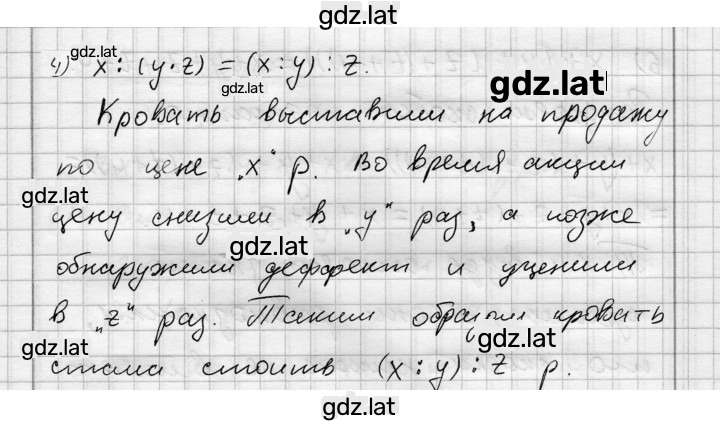 gdz.lat
4) gdz.lat x : (y · z) = (x : y) : z.
gdz.lat gdz.lat
Кровать выставили на продажу
по цене „x" р. Во время акции
gdz.lat
цену снизили в „y" раз, а позже
gdz.lat
обнаружили дефект и уценили
в „z" раз. Таким образом кровать
gdz.lat gdz.lat
стала стоить (x : y) : z р.
gdz.lat